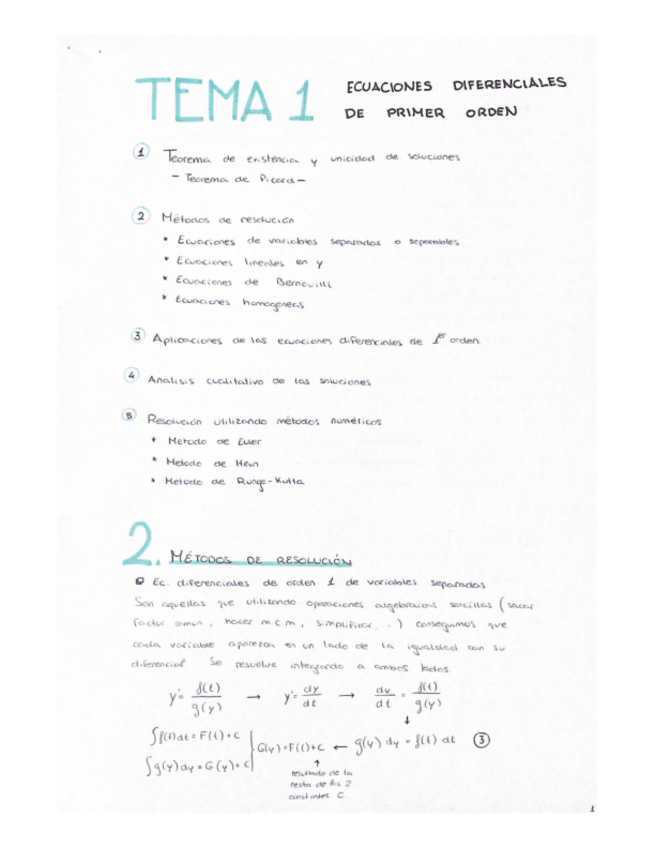 TEMA 1 ECUACIONES DIFERENCIALES
DE PRIMER ORDEN
1 Teorema de existencia y unicidad de soluciones
- Teorema de Picard -
2 Métodos de resolución
* Ecuaciones de variables separadas o separables
* Ecuaciones lineales en y
* Ecuaciones de Bernouilli
* Ecuaciones homogeneas
3 Aplicaciones de las ecuaciones diferenciales de 1er orden
4 Analisis cualitativo de las soluciones
5 Resolución utilizando métodos numéricos
* Metodo de Euler
* Metodo de Heun
* Metodo de Runge-Kutta
2. MÉTODOS DE RESOLUCIÓN
Ec. diferenciales de orden 1 de variables separadas
Son aquellas que utilizando operaciones algebraicas sencillas (sacar
factor comun, hacer m.c.m, simplificar,..) conseguimos que
cada variable aparezca en un lado de la igualdad con su
diferencial Se resuelve integrando a ambos lados.
y' = f(t)/g(y) → y' = dy/dt → dy/dt = f(t)/g(y)
↓
∫f(t)dt = F(t)+C
G(y) = F(t)+C ← g(y) dy = f(t) dt 3
∫g(y)dy = G(y)+C
↑
resultado de la
resta de las 2
constantes C.
1